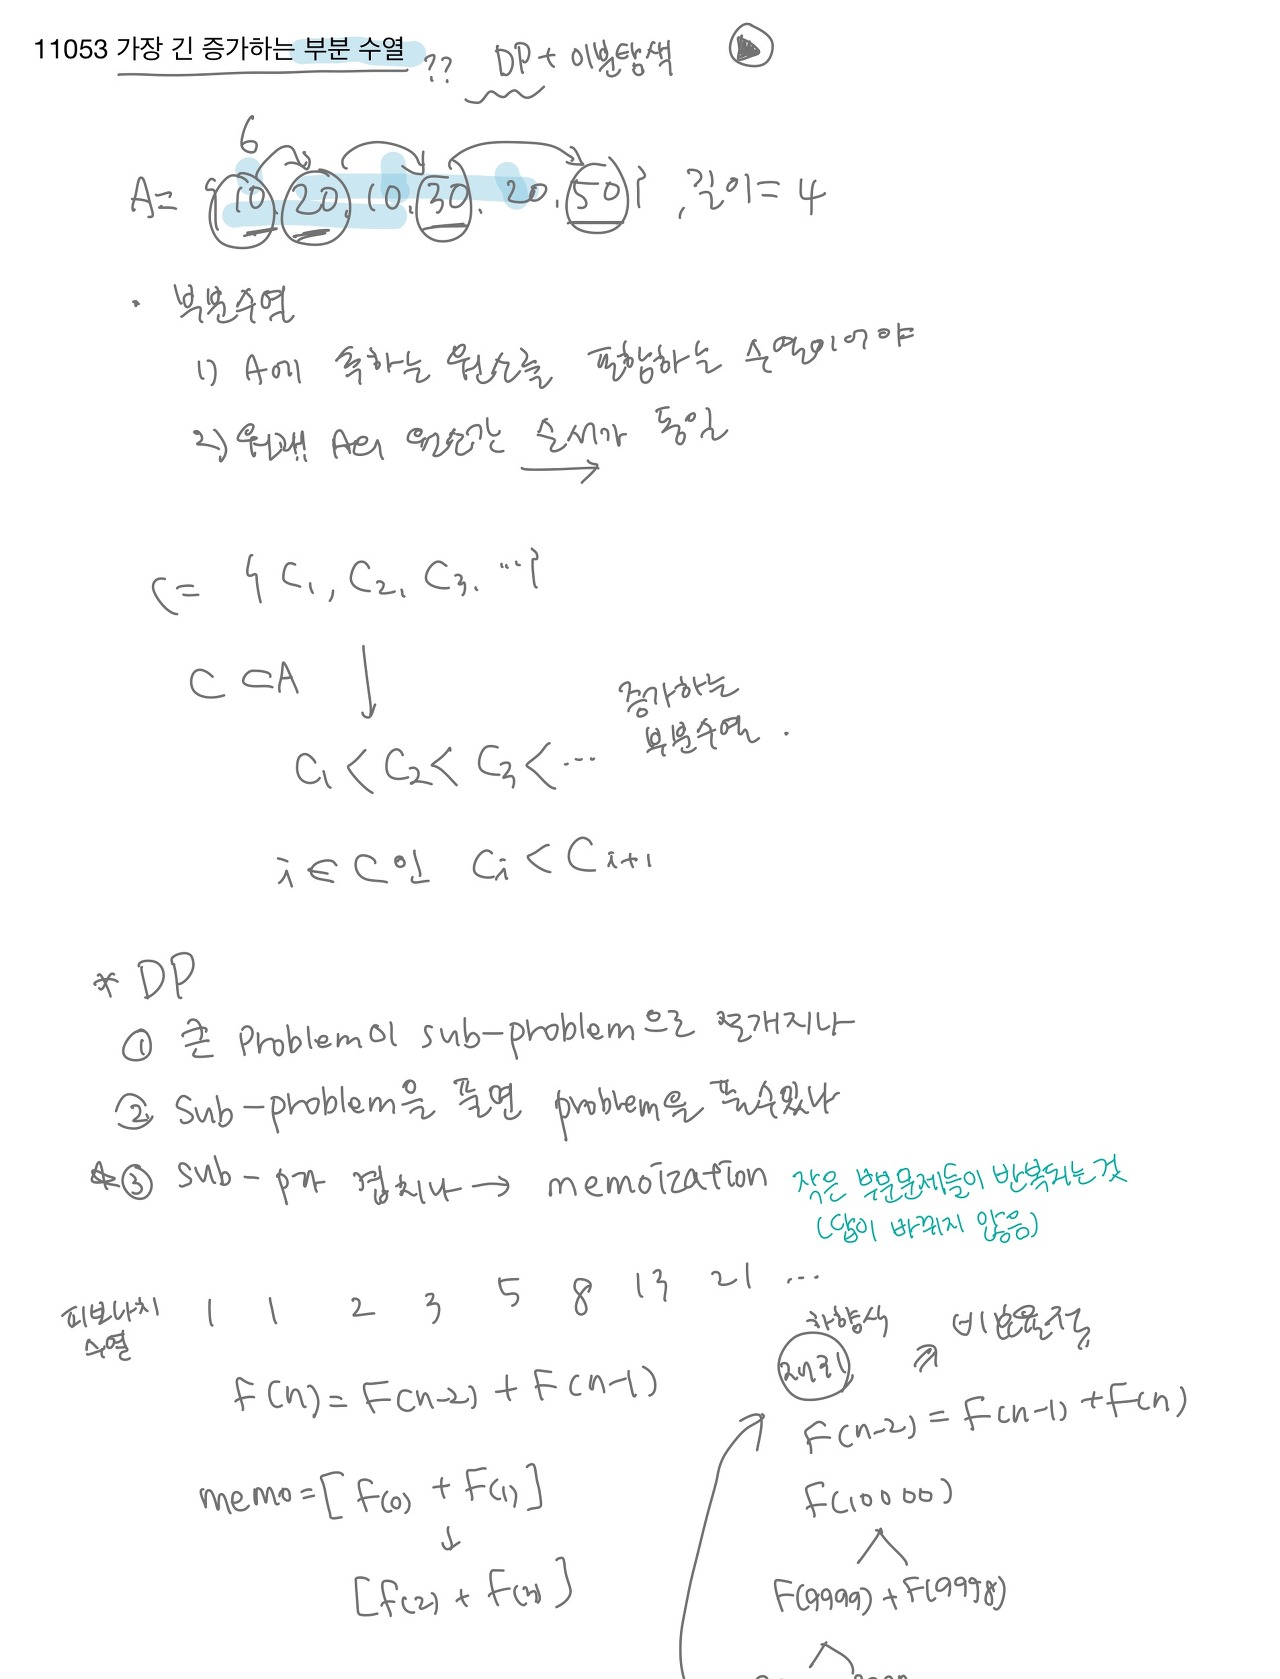 11053 가장 긴 증가하는 부분 수열 ?? DP + 이분탐색
6
A = {10, 20, 10, 30, 20, 50}, 길이 = 4
· 부분수열
1) A에 속하는 원소를 포함하는 수열이어야
2) 원래 A의 원소간 순서가 동일
C = { C1, C2, C3, ...}
C ⊂ A ↓
증가하는
부분수열.
C1 < C2 < C3 < ...
i ∈ C인 Ci < Ci+1
* DP
① 큰 problem이 sub-problem으로 쪼개지나
② sub-problem을 풀면 problem을 풀 수 있나
☆③ sub-p가 겹치나 → memoization 작은 부분문제들이 반복되는 것
(답이 바뀌지 않음)
피보나치 1 1 2 3 5 8 13 21 ...
수열
하향식
재귀 ↗ 비효율적
F(n) = F(n-2) + F(n-1)
F(n-2) = F(n-1) + F(n)
memo = [F(0) + F(1)]
↓
[F(2) + F(3)]
F(10000)
F(9999) + F(9998)